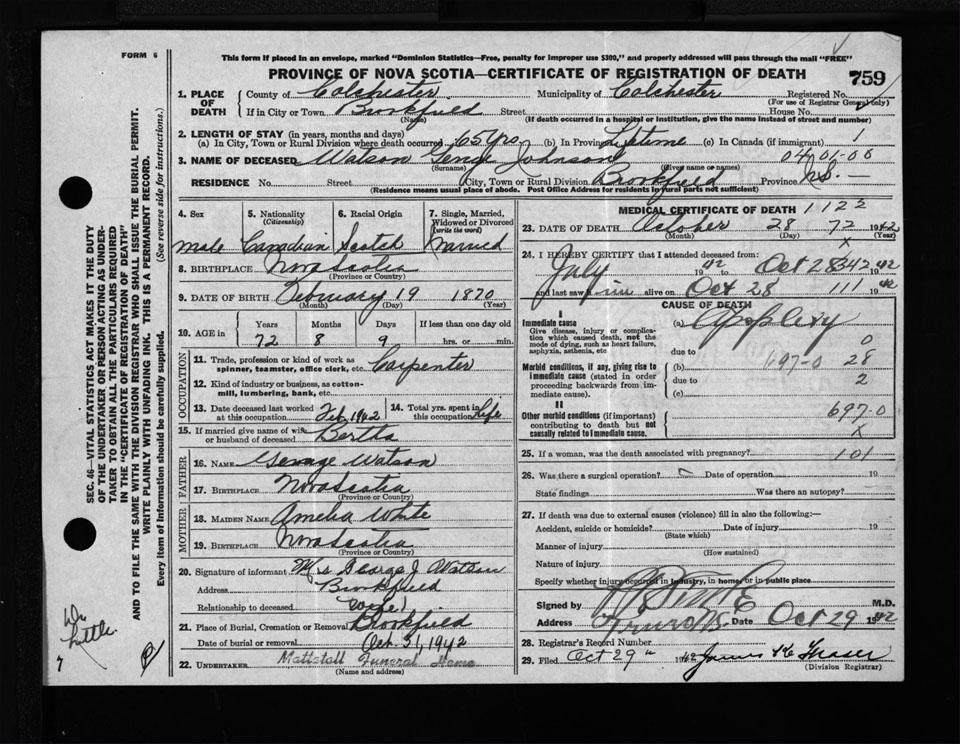 FORM 6
This form if placed in an envelope, marked "Dominion Statistics—Free, penalty for improper use $300," and properly addressed will pass through the mail "FREE"
PROVINCE OF NOVA SCOTIA—CERTIFICATE OF REGISTRATION OF DEATH
759
1. PLACE OF DEATH
County of Colchester Municipality of Colchester Registered No.
(For use of Registrar General only)
If in City or Town Brookfield Street House No.
(Name) (If death occurred in a hospital or institution, give the name instead of street and number)
2. LENGTH OF STAY (in years, months and days)
(a) In City, Town or Rural Division where death occurred 65 yrs. (b) In Province Lifetime (c) In Canada (if immigrant) 1
3. NAME OF DECEASED Watson George Johnson 04-01-00
(Surname) (Given name or names)
RESIDENCE No. Street (City, Town or Rural Division Brookfield Province N.S. —
(Residence means usual place of abode. Post Office Address for residents in rural parts not sufficient)
4. Sex male
5. Nationality (Citizenship) Canadian
6. Racial Origin Scotch
7. Single, Married, Widowed or Divorced (write the word) Married
8. BIRTHPLACE Nova Scotia
(Province or Country)
9. DATE OF BIRTH February 19 1870
(Month) (Day) (Year)
10. AGE in Years Months Days If less than one day old
72 8 9 hrs. or min.
OCCUPATION
11. Trade, profession or kind of work as spinner, teamster, office clerk, etc. Carpenter
12. Kind of industry or business, as cotton-mill, lumbering, bank, etc.
13. Date deceased last worked at this occupation Feb. 1942
14. Total yrs. spent in this occupation Life
15. If married give name of wife or husband of deceased Bertha
FATHER
16. NAME George Watson
17. BIRTHPLACE Nova Scotia
(Province or Country)
MOTHER
18. MAIDEN NAME Amelia White
19. BIRTHPLACE Nova Scotia
(Province or Country)
20. Signature of informant Mrs George J Watson
Address Brookfield
Relationship to deceased (wife)
21. Place of Burial, Cremation or Removal Brookfield
Date of burial or removal Oct. 31, 1942
22. UNDERTAKER Mattatall Funeral Home
(Name and address)
MEDICAL CERTIFICATE OF DEATH 1122
23. DATE OF DEATH October 28 72 1942
(Month) (Day) (Year)
x
24. I HEREBY CERTIFY that I attended deceased from:
July 1942 to Oct 28 342 1942
and last saw him alive on Oct 28 111 1942
CAUSE OF DEATH
I
Immediate cause (a) Apoplexy
Give disease, injury or complication which caused death, not the mode of dying, such as heart failure, asphyxia, asthenia, etc
0
due to 697-0 28
Morbid conditions, if any, giving rise to immediate cause (stated in order proceeding backwards from immediate cause).
due to 2
(c)
II
Other morbid conditions (if important) contributing to death but not causally related to immediate cause.
697-0
x
25. If a woman, was the death associated with pregnancy? 101
26. Was there a surgical operation? Date of operation 19
State findings Was there an autopsy?
27. If death was due to external causes (violence) fill in also the following:—
Accident, suicide or homicide? Date of injury 19
(State which)
Manner of injury
(How sustained)
Nature of injury
Specify whether injury occurred in industry, in home, or in public place
Signed by M.D.
Address Date Oct 29 1942
28. Registrar's Record Number
29. Filed Oct 29th 1942 James K Fraser
(Division Registrar)
SEC. 46—VITAL STATISTICS ACT MAKES IT THE DUTY
OF THE UNDERTAKER OR PERSON ACTING AS UNDER-
TAKER TO OBTAIN ALL THE PARTICULARS REQUIRED
IN THE "CERTIFICATE OF REGISTRATION OF DEATH"
AND TO FILE THE SAME WITH THE DIVISION REGISTRAR WHO SHALL ISSUE THE BURIAL PERMIT.
WRITE PLAINLY WITH UNFADING INK. THIS IS A PERMANENT RECORD.
Every item of Information should be carefully supplied. (See reverse side for instructions.)
Dr.
Little.